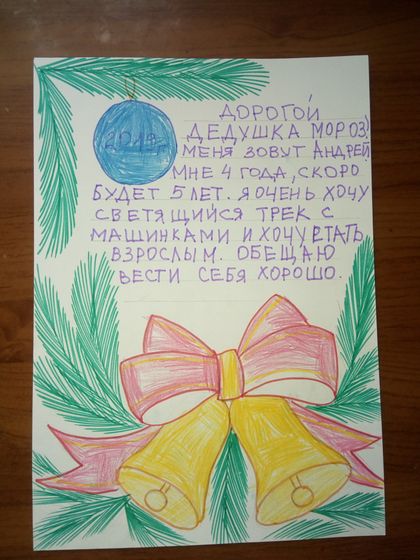 2019г.
ДОРОГОЙ
ДЕДУШКА МОРОЗ!
МЕНЯ ЗОВУТ АНДРЕЙ!
МНЕ 4 ГОДА, СКОРО
БУДЕТ 5 ЛЕТ. Я ОЧЕНЬ ХОЧУ
СВЕТЯЩИЙСЯ ТРЕК С
МАШИНКАМИ И ХОЧУ СТАТЬ
ВЗРОСЛЫМ. ОБЕЩАЮ
ВЕСТИ СЕБЯ ХОРОШО.